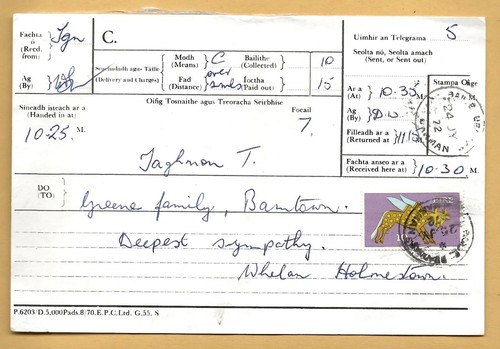 Fachta ó (Recd. from:) Tgn
C.
Uimhir an Telegrama 5
Seolta nó, Seolta amach (Sent, or Sent out)
Seachadadh agus Táille (Delivery and Charges)
Modh (Means) C
Bailithe (Collected) 10
Fad (Distance) over 5mls
Íoctha (Paid out) 15
Ag (By)
Ar a (At) 10.35 M.
Stampa Oifige
Ag (By)
Síneadh isteach ar a (Handed in at)
10.25. M.
Oifig Tosnaithe agus Treoracha Seirbhíse
Focail
7.
Filleadh ar a (Returned at) 1115
Fachta anseo ar a (Received here at) 10.30 M.
Taghmon T.
DO (TO)
Greene family, Barntown.
Deepest sympathy.
Whelan Holmestown.
P.6203/D.5,000Pads.8/70.E.P.C.Ltd. G.55. S